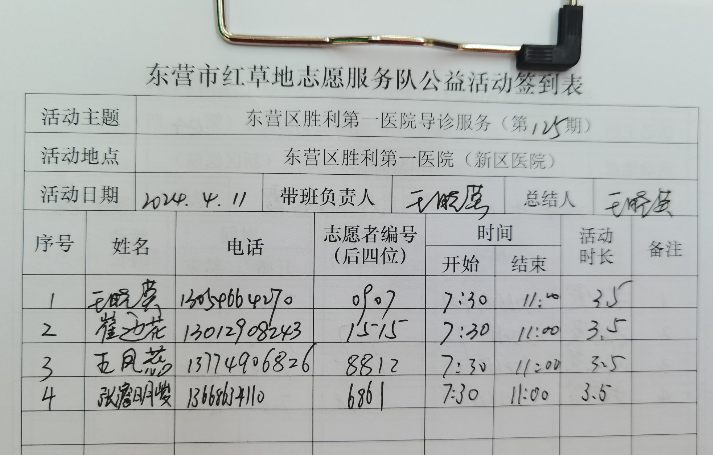 东营市红草地志愿服务队公益活动签到表
活动主题 东营区胜利第一医院导诊服务（第125期）
活动地点 东营区胜利第一医院（新区医院）
活动日期 2024.4.11 带班负责人 王晓蕾 总结人 王晓蕾
序号 姓名 电话 志愿者编号（后四位） 时间 活动时长 备注
开始 结束
1 王晓蕾 13054664270 0907 7:30 11:00 3.5
2 13012908243 1515 7:30 11:00 3.5
3 13774906826 8812 7:30 11:00 3.5
4 13668634110 6861 7:30 11:00 3.5